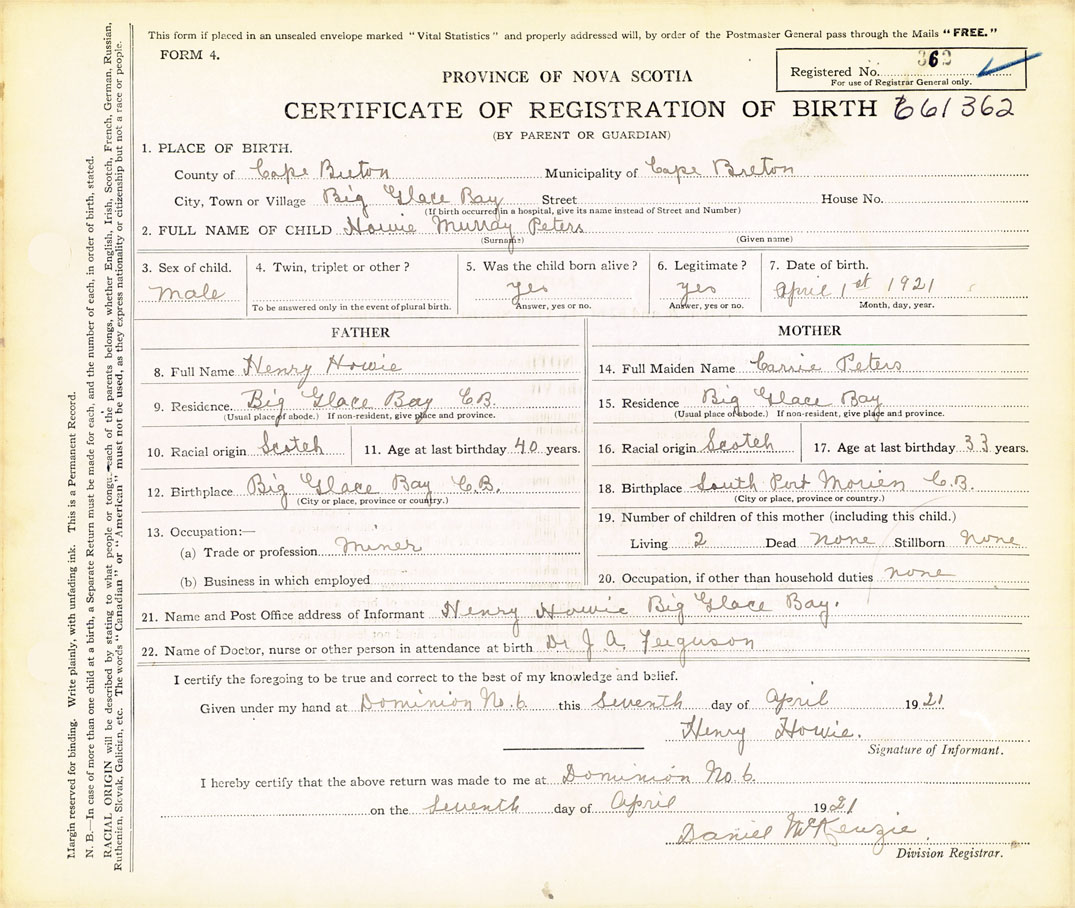 This form if placed in an unsealed envelope marked "Vital Statistics" and properly addressed will, by order of the Postmaster General pass through the Mails "FREE."
FORM 4.
Registered No. 362
For use of Registrar General only.
PROVINCE OF NOVA SCOTIA
CERTIFICATE OF REGISTRATION OF BIRTH 661362
(BY PARENT OR GUARDIAN)
1. PLACE OF BIRTH.
County of Cape Breton Municipality of Cape Breton
City, Town or Village Big Glace Bay Street House No.
(If birth occurred in a hospital, give its name instead of Street and Number)
2. FULL NAME OF CHILD Howie Murray Peters
(Surname) (Given name)
3. Sex of child. 4. Twin, triplet or other? 5. Was the child born alive? 6. Legitimate? 7. Date of birth.
male yes yes April 1st 1921
To be answered only in the event of plural birth. Answer, yes or no. Answer, yes or no. Month, day, year.
FATHER
8. Full Name Henry Howie
9. Residence. Big Glace Bay C.B.
(Usual place of abode.) If non-resident, give place and province.
10. Racial origin Scotch 11. Age at last birthday 40 years.
12. Birthplace Big Glace Bay C.B.
(City or place, province or country.)
13. Occupation:—
(a) Trade or profession miner
(b) Business in which employed
MOTHER
14. Full Maiden Name Carrie Peters
15. Residence Big Glace Bay
(Usual place of abode.) If non-resident, give place and province.
16. Racial origin Scotch 17. Age at last birthday 33 years.
18. Birthplace South Port Morien C.B.
(City or place, province or country.)
19. Number of children of this mother (including this child.)
Living 2 Dead none Stillborn none
20. Occupation, if other than household duties none
21. Name and Post Office address of Informant Henry Howie Big Glace Bay.
22. Name of Doctor, nurse or other person in attendance at birth Dr J. A. Ferguson
I certify the foregoing to be true and correct to the best of my knowledge and belief.
Given under my hand at Dominion No. 6 this Seventh day of April 1921
Henry Howie.
Signature of Informant.
I hereby certify that the above return was made to me at Dominion No. 6
on the Seventh day of April 1921
Daniel McKenzie.
Division Registrar.
Margin reserved for binding. Write plainly, with unfading ink. This is a Permanent Record.
N. B.—In case of more than one child at a birth, a Separate Return must be made for each, and the number of each, in order of birth, stated.
RACIAL ORIGIN will be described by stating to what people or tongue each of the parents belongs, whether English, Irish, Scotch, French, German, Russian,
Ruthenian, Slovak, Galician, etc. The words "Canadian" or "American" must not be used, as they express nationality or citizenship but not a race or people.